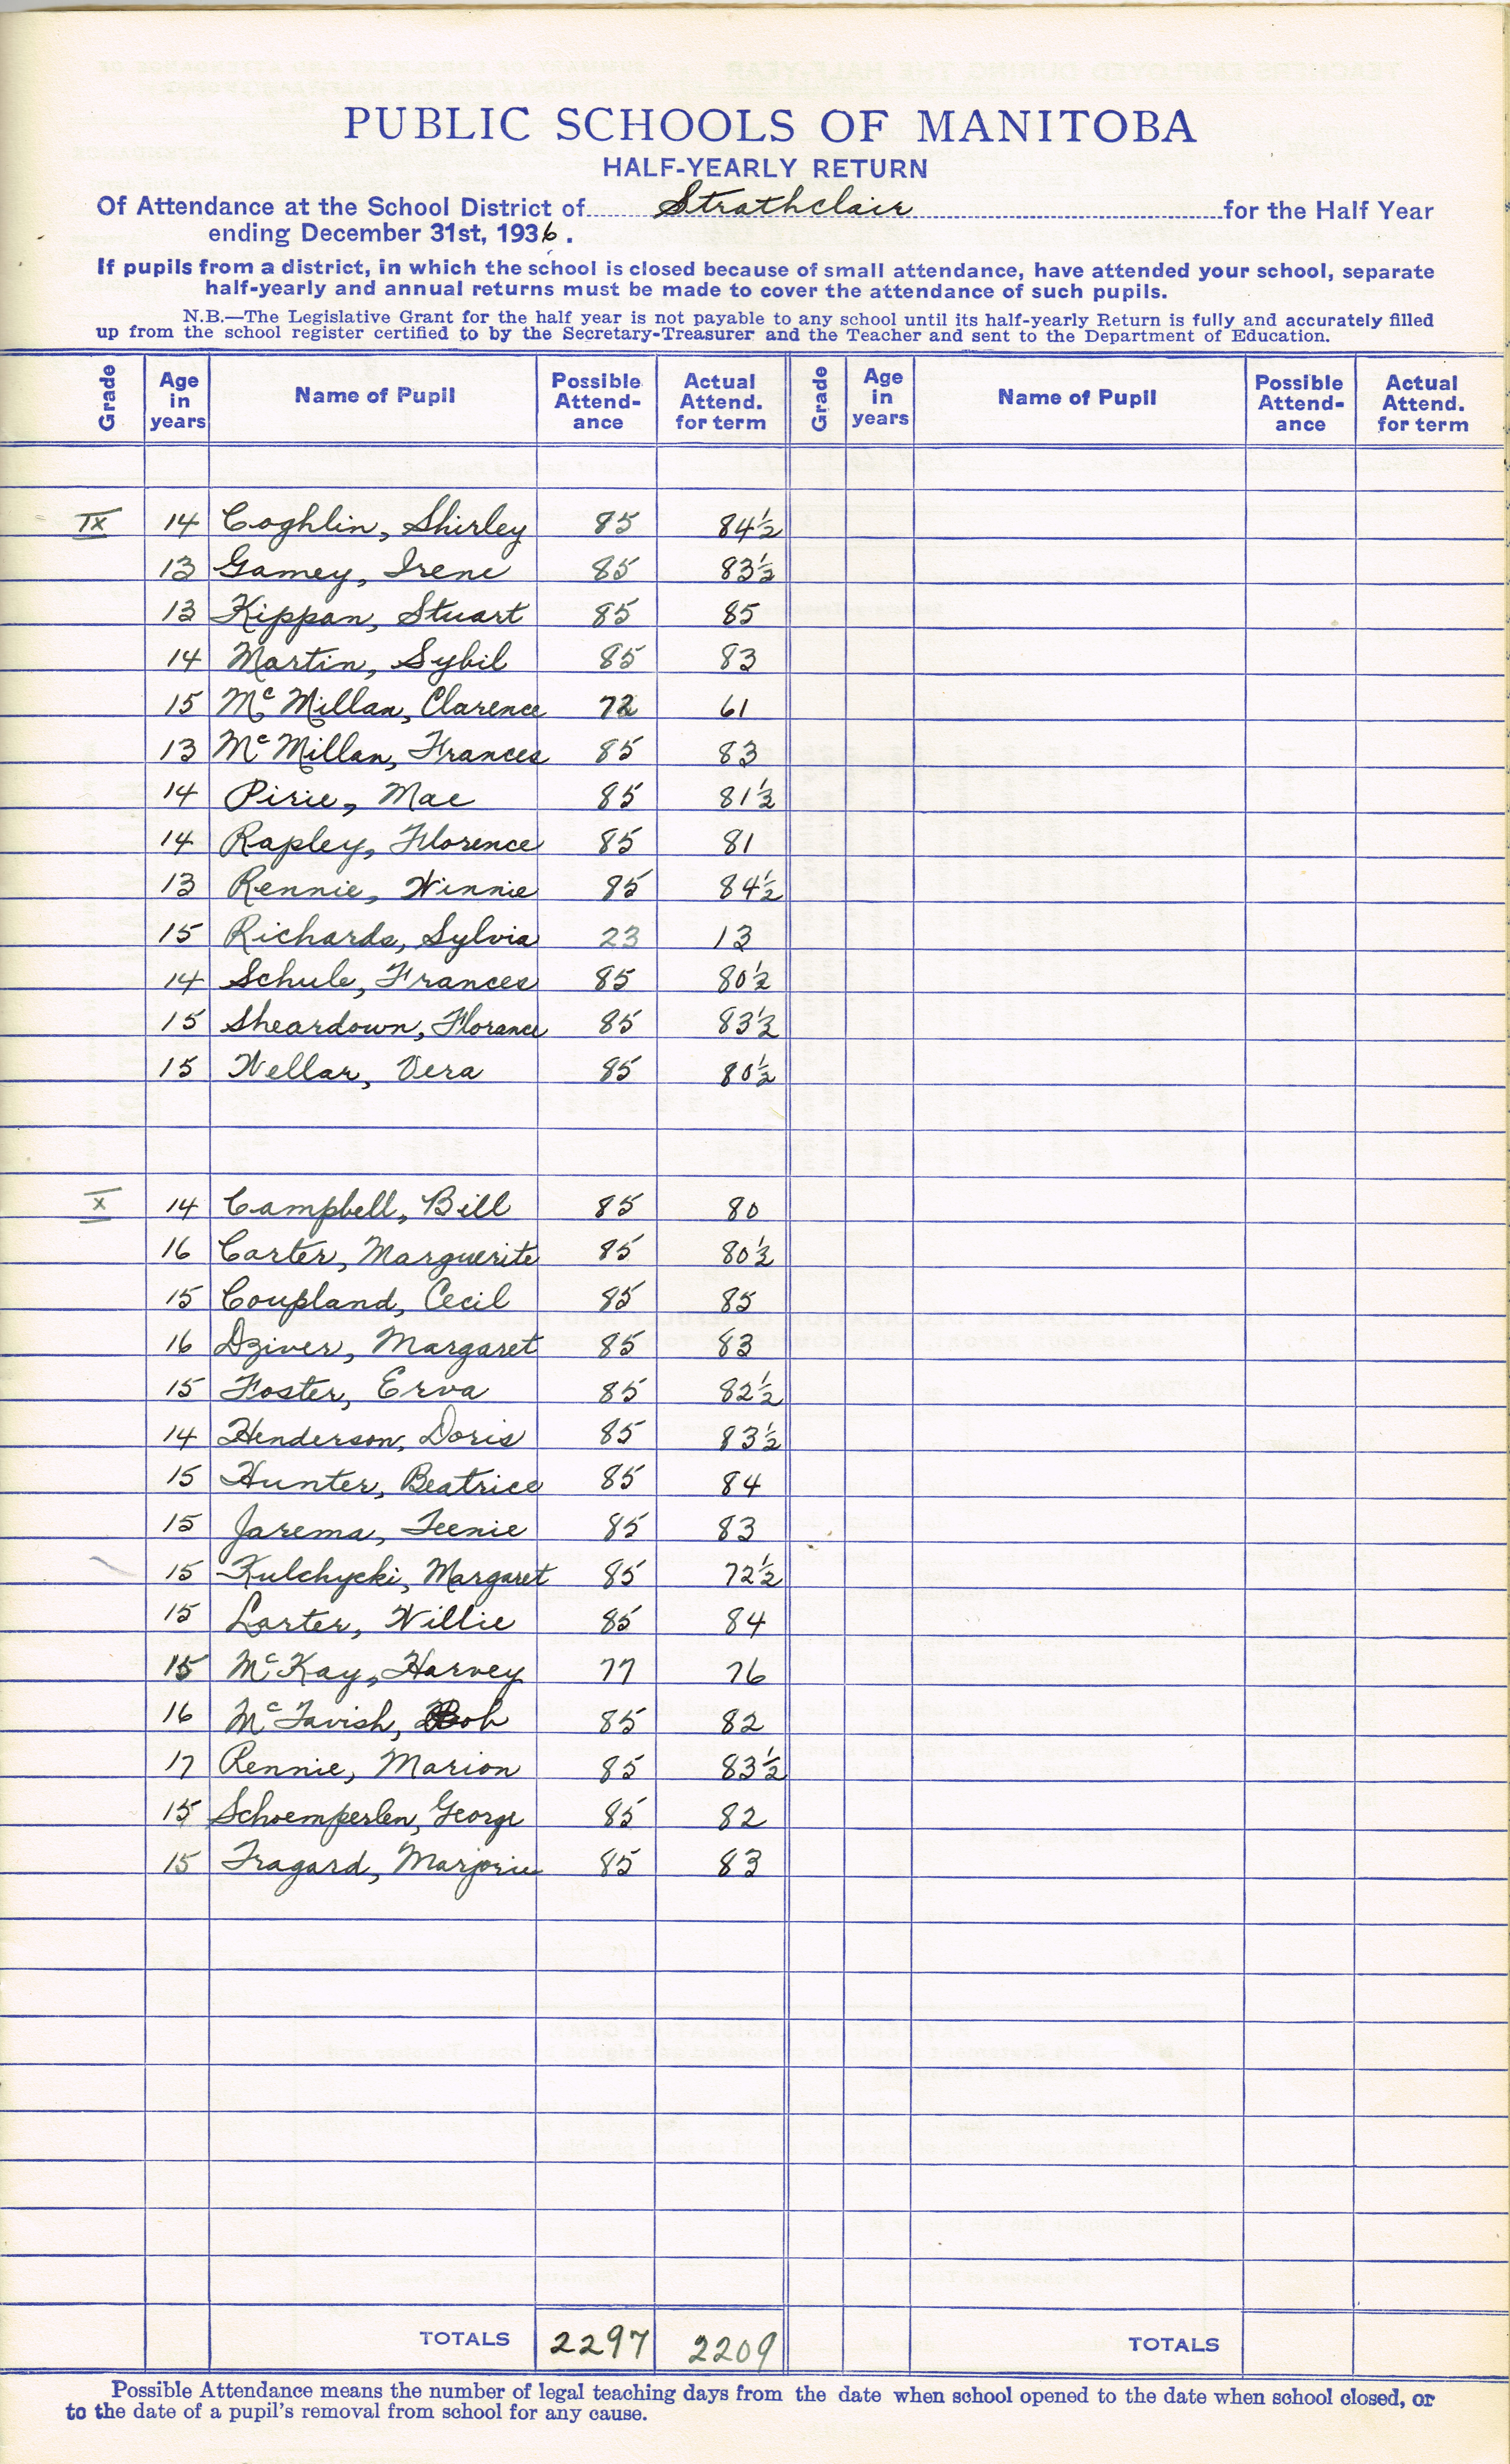 PUBLIC SCHOOLS OF MANITOBA
HALF-YEARLY RETURN
Of Attendance at the School District of Strathclair for the Half Year
ending December 31st, 1936.
If pupils from a district, in which the school is closed because of small attendance, have attended your school, separate
half-yearly and annual returns must be made to cover the attendance of such pupils.
N.B.—The Legislative Grant for the half year is not payable to any school until its half-yearly Return is fully and accurately filled
up from the school register certified to by the Secretary-Treasurer and the Teacher and sent to the Department of Education.
Grade Age in years Name of Pupil Possible Attend-ance Actual Attend. for term Grade Age in years Name of Pupil Possible Attend-ance Actual Attend. for term
IX 14 Coghlin, Shirley 85 84½
13 Gamey, Irene 85 83½
13 Kippan, Stuart 85 85
14 Martin, Sybil 85 83
15 McMillan, Clarence 72 61
13 McMillan, Frances 85 83
14 Pirie, Mae 85 81½
14 Rapley, Florence 85 81
13 Rennie, Winnie 85 84½
15 Richards, Sylvia 23 13
14 Schule, Frances 85 80½
15 Sheardown, Florance 85 83½
15 Wellar, Vera 85 80½
X 14 Campbell, Bill 85 80
16 Carter, Marguerite 85 80½
15 Coupland, Cecil 85 85
16 Dziver, Margaret 85 83
15 Foster, Erva 85 82½
14 Henderson, Doris 85 83½
15 Hunter, Beatrice 85 84
15 Jarema, Teenie 85 83
15 Kulchycki, Margaret 85 72½
15 Larter, Willie 85 84
15 McKay, Harvey 77 76
16 McTavish, Bob 85 82
17 Rennie, Marion 85 83½
15 Schoemperlen, George 85 82
15 Tragard, Marjorie 85 83
TOTALS 2297 2209 TOTALS
Possible Attendance means the number of legal teaching days from the date when school opened to the date when school closed, or
to the date of a pupil's removal from school for any cause.